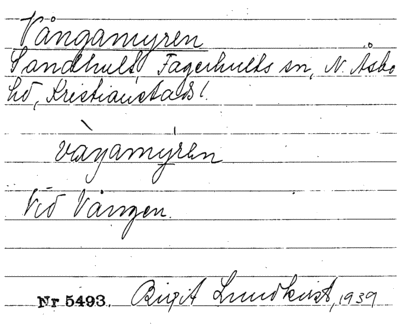 Vångamyren
Sandhult, Fagerhults sn, N. Åsbo
hd, Kristianstads l.
vàŋamýren
Vid Vången.
Nr 5493. Birgit Lundkvist, 1939